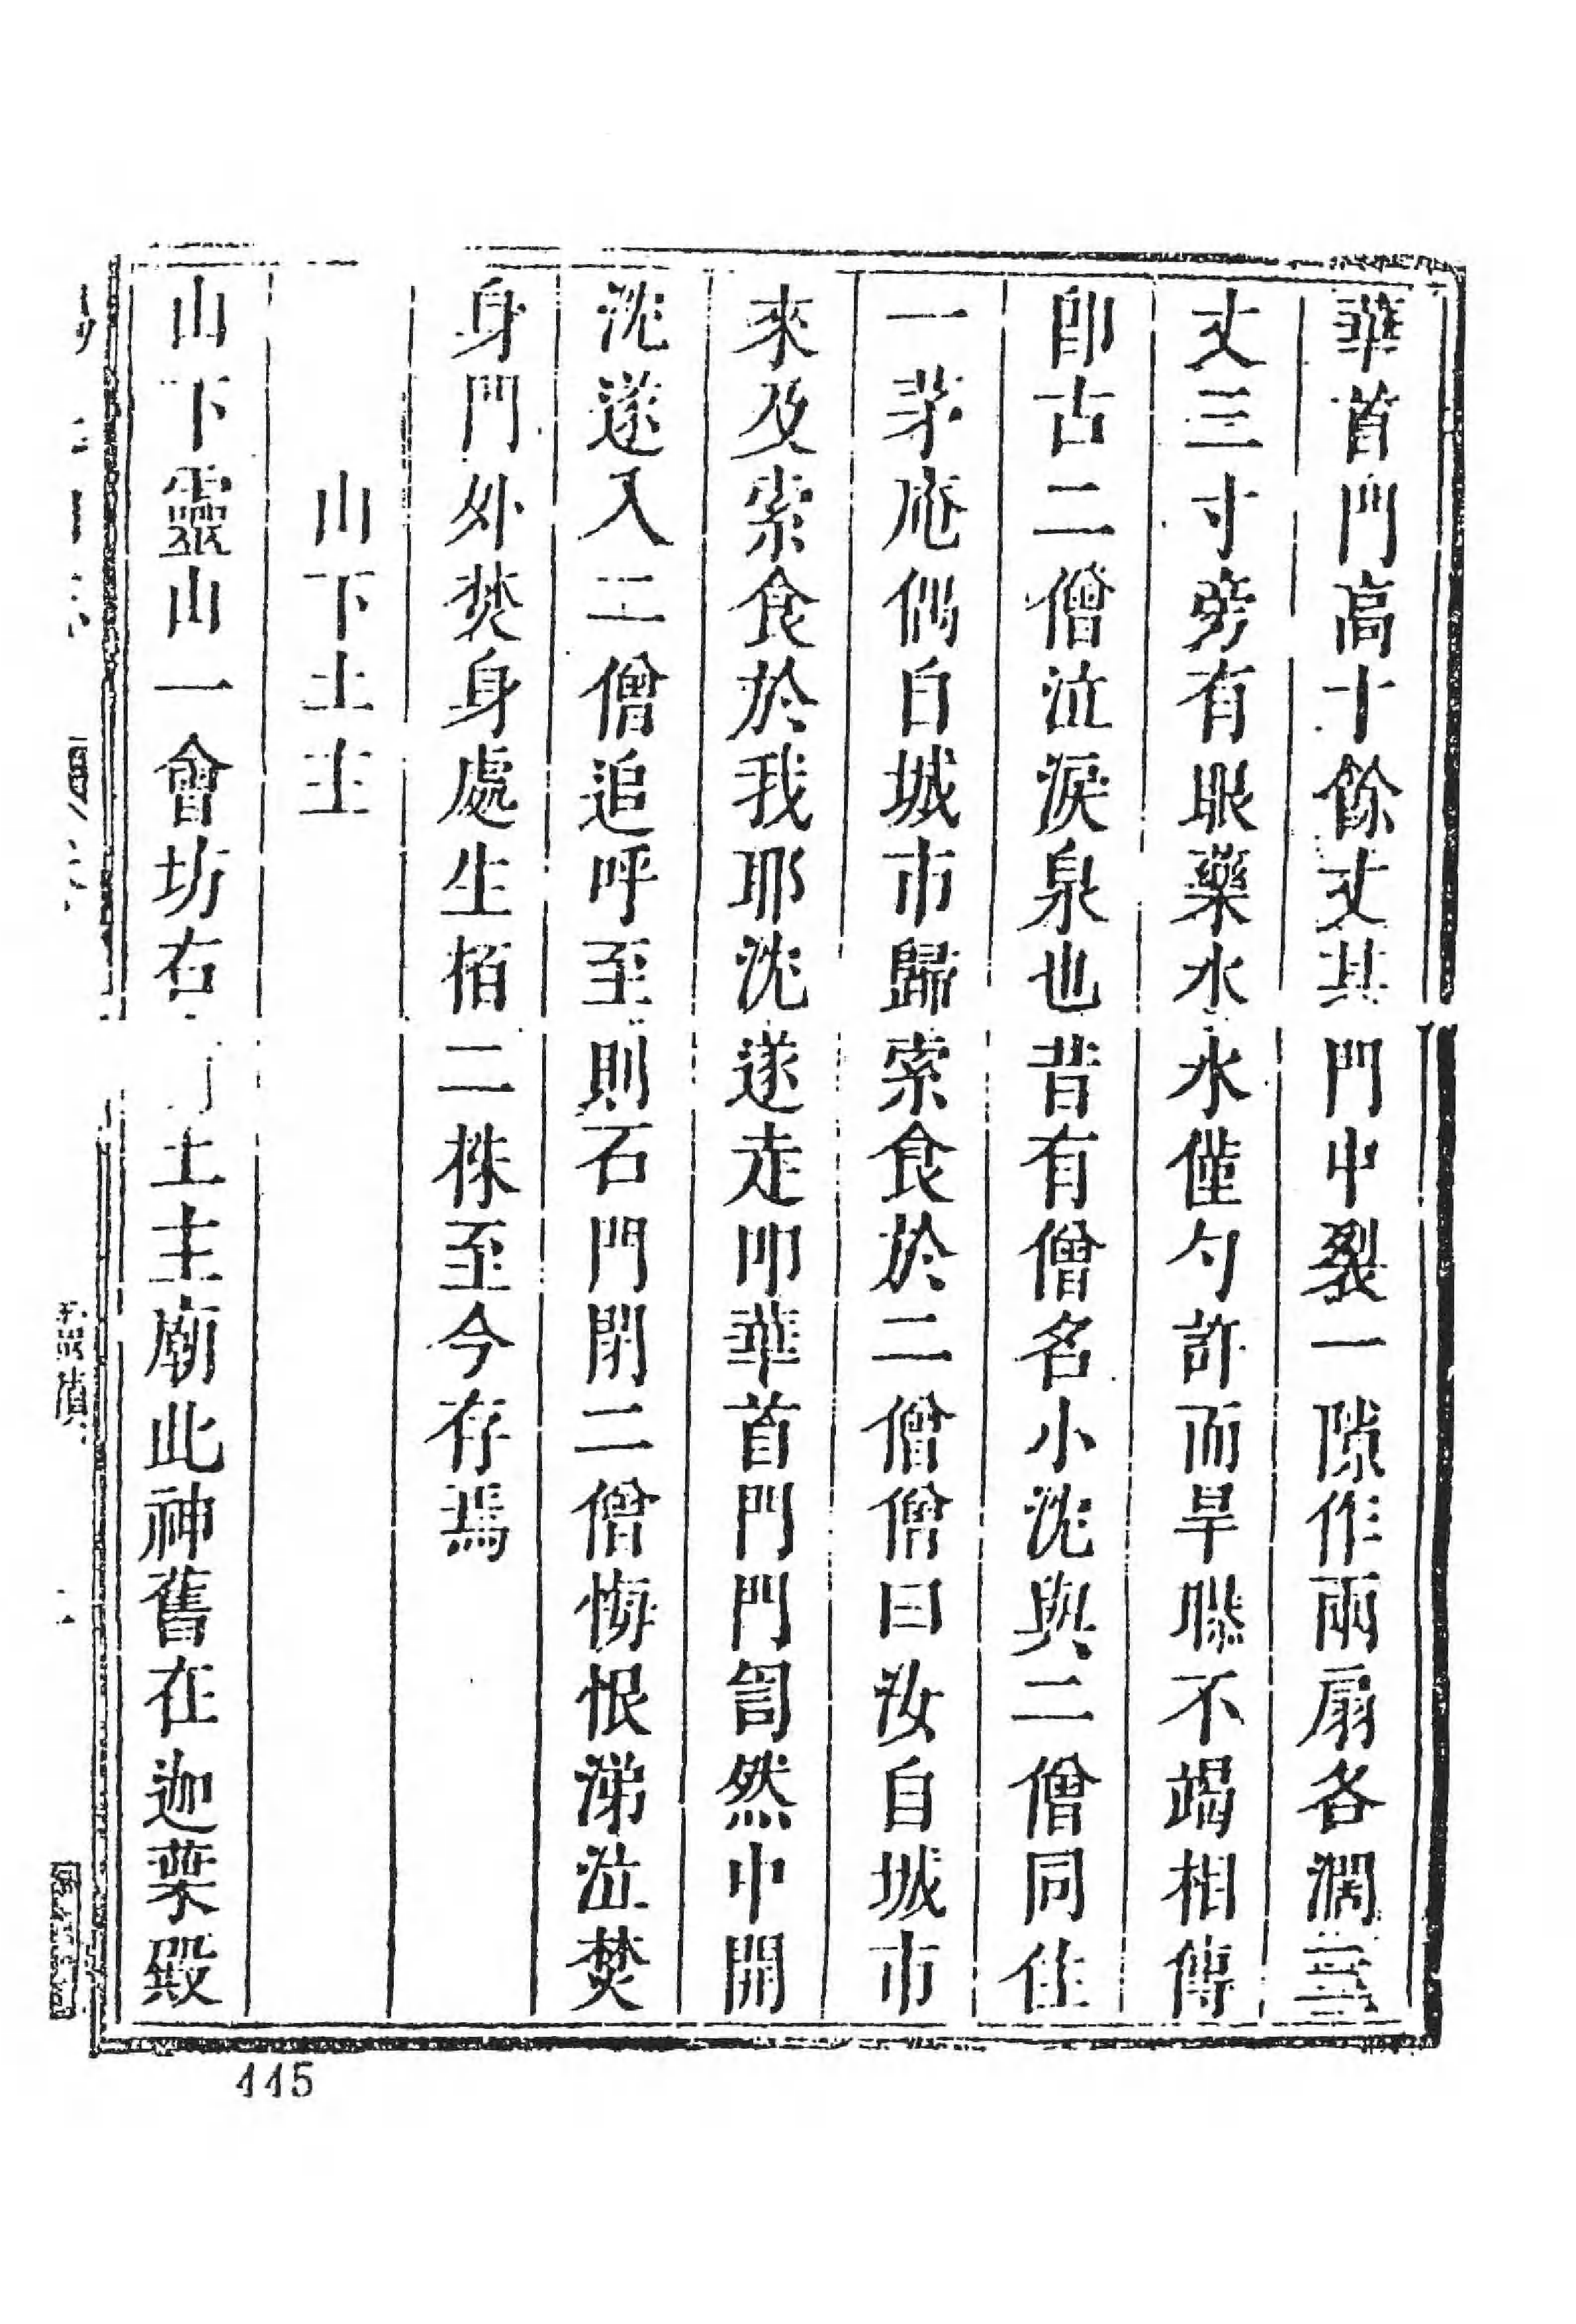 華首門高十餘丈其門中裂一隙作兩扇各濶三
丈三寸旁有眼藥水水僅勺許而旱暵不竭相傳
卽古二僧泣淚泉也昔有僧名小沈與二僧同住
一茅庵偶自城市歸索食於二僧僧曰汝自城市
來反索食於我耶沈遂走叩華首門門訇然中開
沈遂入二僧追呼至則石門閉二僧悔恨涕泣焚
身門外焚身處生栢二株至今存焉
山下土主
山下靈山一會坊右土主廟此神舊在迦葉殿
115